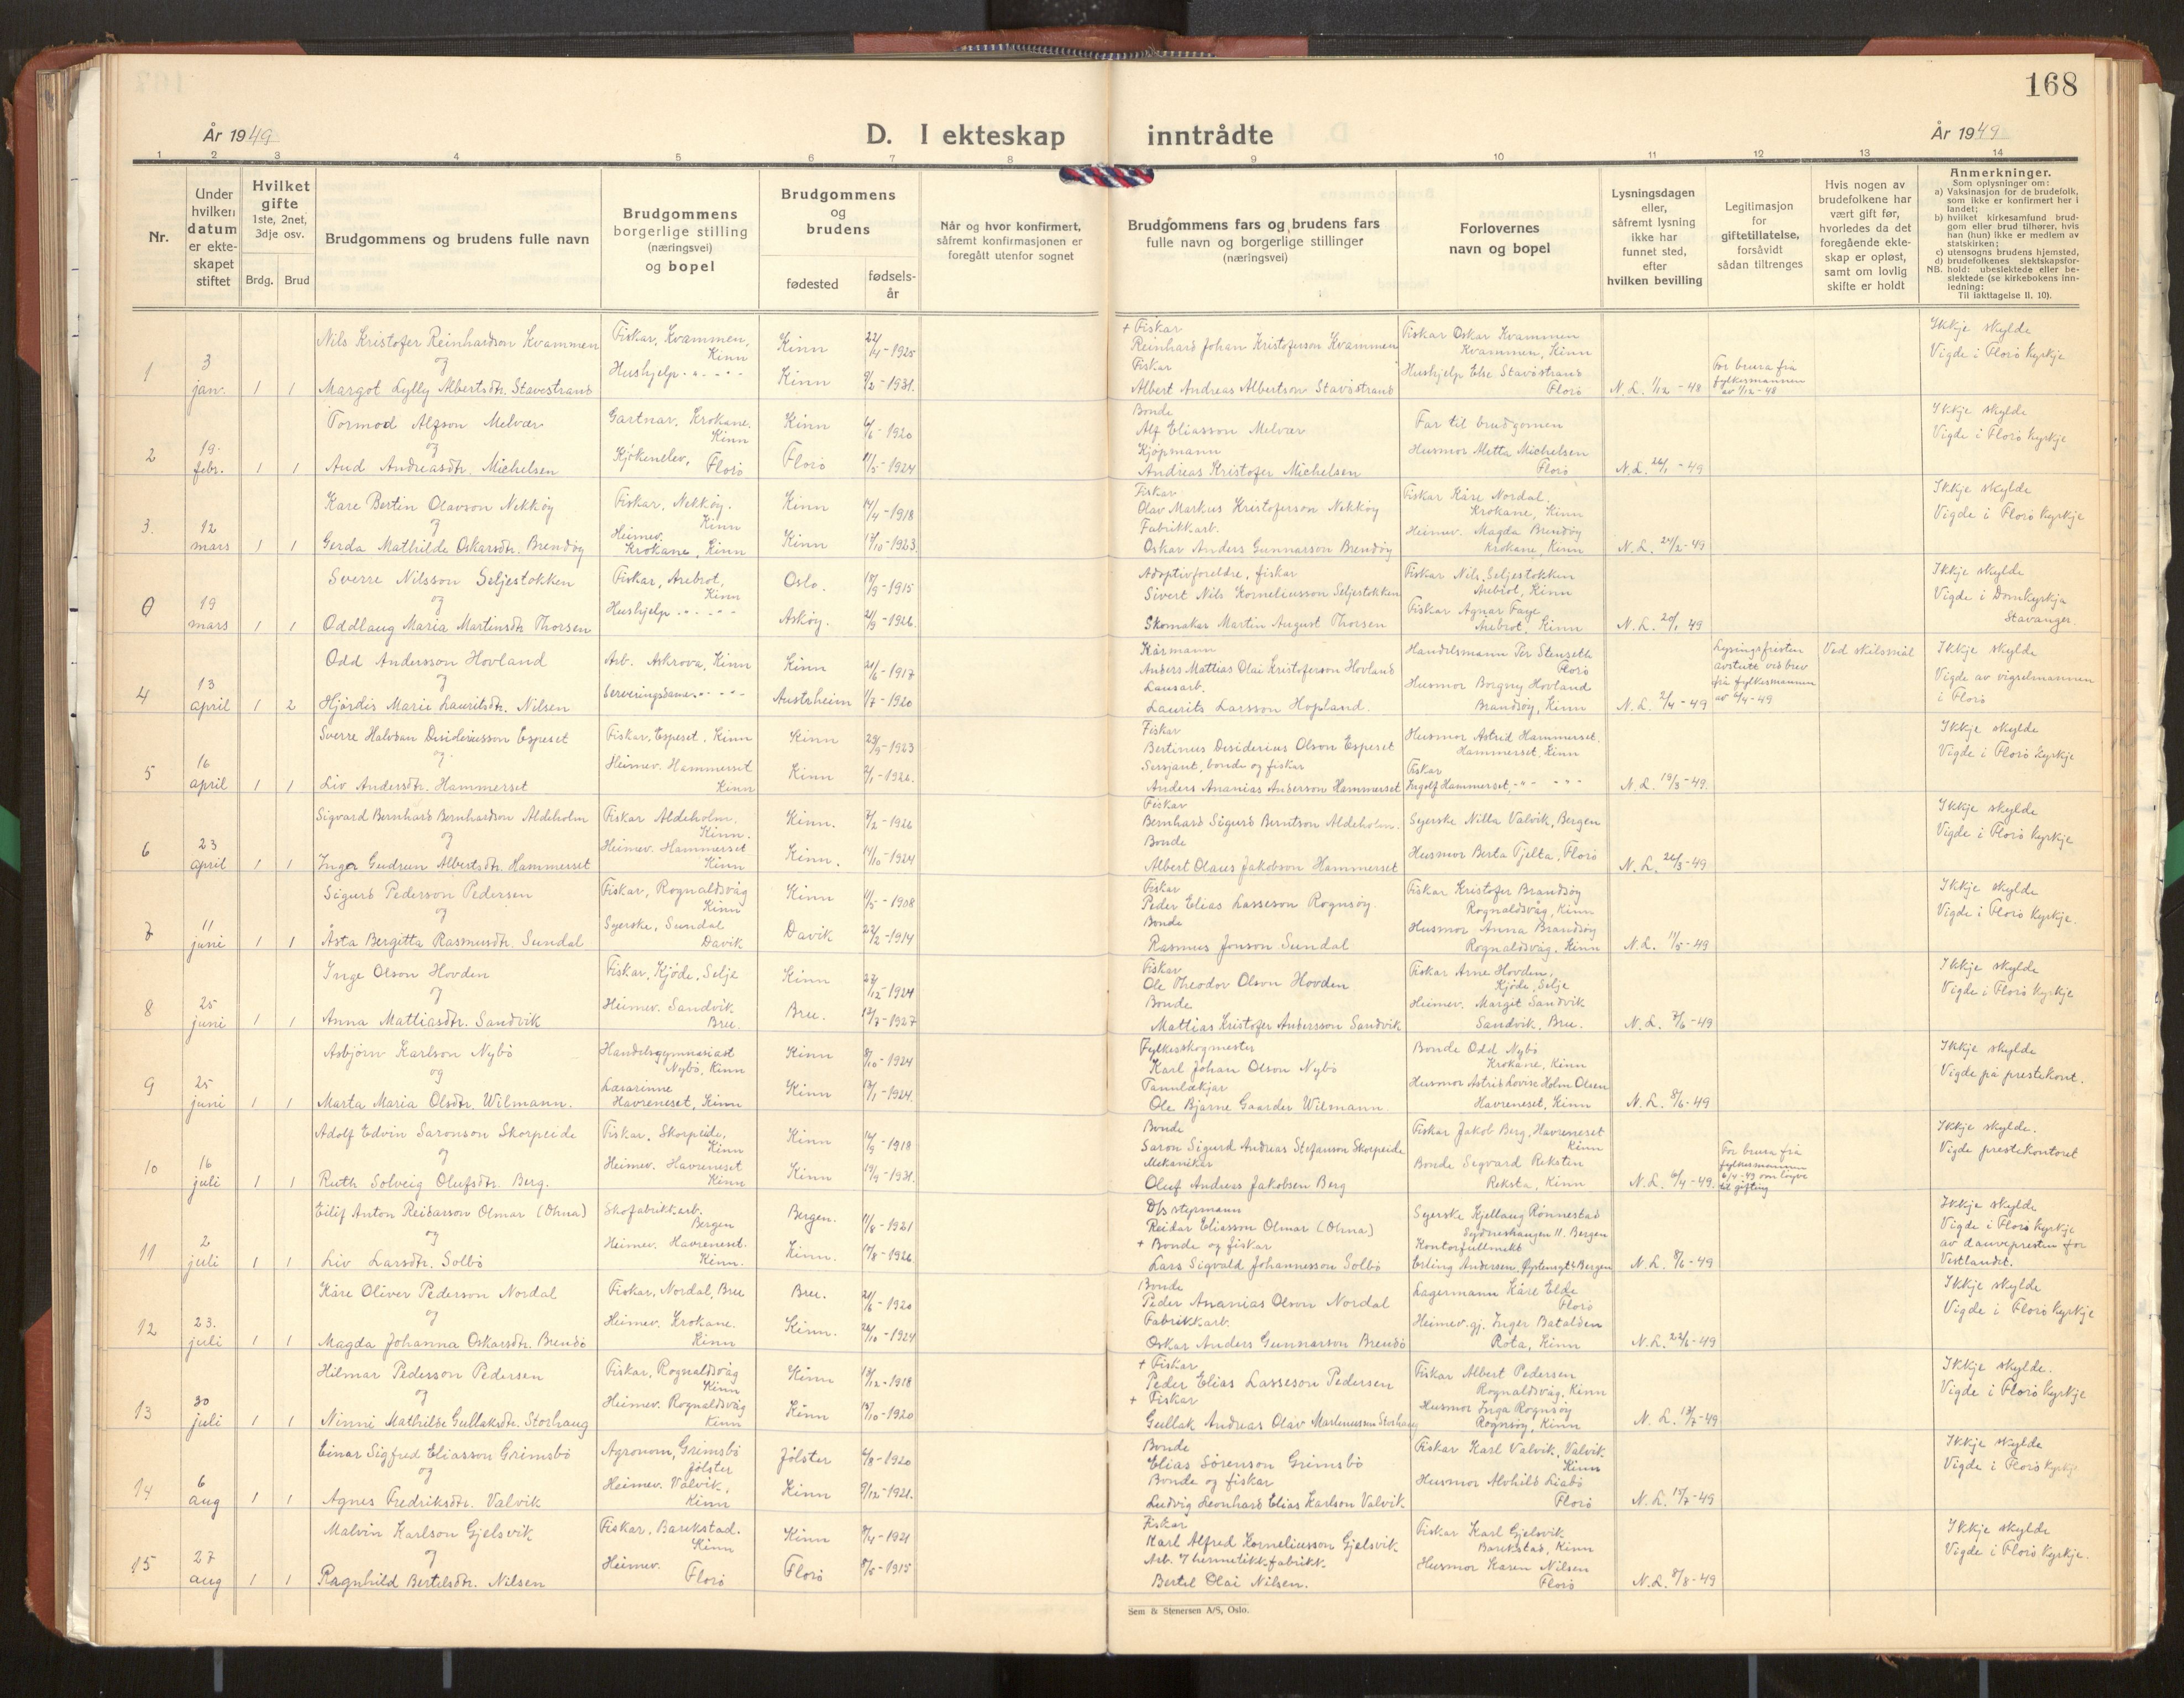 168
År 1949
D. I ekteskap inntrådte
År 1949
1 2 3 4 5 6 7 8 9 10 11 12 13 14
Nr.
Under hvilken datum er ekteskapet stiftet
Hvilket gifte
1ste, 2net, 3dje osv.
Brdg. Brud
Brudgommens og brudens fulle navn
Brudgommens borgerlige stilling (næringsvei) og bopel
Brudgommens og brudens
fødested
fødsels-år
Når og hvor konfirmert, såfremt konfirmasjonen er foregått utenfor sognet
Brudgommens fars og brudens fars fulle navn og borgerlige stillinger (næringsvei)
Forlovernes navn og bopel
Lysningsdagen eller, såfremt lysning ikke har funnet sted, efter hvilken bevilling
Legitimasjon for giftetillatelse, forsåvidt sådan tiltrenges
Hvis nogen av brudefolkene har vært gift før, hvorledes da det foregående ekteskap er opløst, samt om lovlig skifte er holdt
Anmerkninger.
Som oplysninger om:
a) Vaksinasjon for de brudefolk, som ikke er konfirmert her i landet;
b) hvilket kirkesamfund brudgom eller brud tilhører, hvis han (hun) ikke er medlem av statskirken;
c) utensogns brudens hjemsted,
d) brudefolkenes slektskapsfor-
NB. hold: ubeslektede eller beslektede (se kirkebokens innledning;
Til iakttagelse II. 10).
1 3 jan. 1 1
Nils Kristofer Reinhardson Kvammen og Margot Lylly Albertsdtr. Stavestrand
Fiskar, Kvammen, Kinn
Hushjelp " - " -
Kinn 22/4-1925
Kinn 9/2-1931.
+ Fiskar
Reinhard Johan Kristoferson Kvammen
Fiskar
Albert Andreas Albertson Stavöstrand
Fiskar Oskar Kvammen
Kvammen, Kinn
Hushjelp Else Stavöstrand
Florö
N. L. 1/12-48
For brura frå fylkesmannen av 1/12-48
Ikkje skylde
Vigde i Florö Kyrkje
2 19. febr. 1 1
Tormod Alfson Melvær og Aud Andreasdtr. Michelsen
Gartnar, Krokane. Kinn
Kjökenelev, Florö
Kinn 6/6-1920
Florö 11/5-1924
Bonde
Alf Eliasson Melvær
Kjöpmann
Andreas Kristofer Michelsen
Far til brudgomen
Husmor Metta Michelsen
Florö
N. L. 26/1-49
Ikkje skylde
Vigde i Florö Kyrkje
3. 12 mars 1 1
Kare Bertin Olavson Nekköy og Gerda Mathilde Oskarsdtr. Brendöy
Fiskar, Nekköy. Kinn
Heimev. Krokane, Kinn
Kinn 14/4-1918
Kinn 17/10-1923.
Fiskar
Olav Markus Kristoferson Nekköy
Fabrikkarb.
Oskar Anders Gunnarson Brendöy
Fiskar Kåre Nordal.
Krokane, Kinn
Heimev. Magda Brendöy
Krokane, Kinn
N. L. 24/2-49
Ikkje skylde
Vigde i Florö Kyrkje
0 19 mars 1 1
Sverre Nilsson Seljestokken og Oddlaug Maria Martinsdtr Thorsen
Fiskar, Årebrot, Kinn
Hushjelp " - " -
Oslo. 18/9-1915
Asköy. 21/9-1926.
Adoptivforeldre, fiskar
Sivert Nils Korneliusson Seljestokken
Skomakar Martin August Thorsen
Fiskar Nils Seljestokken
Årebrot, Kinn
Fiskar Agnar Faye
Årebrot, Kinn
N. L. 20/1 49
Ikkje skylde
Vigde i Domkyrkja
Stavanger.
4 13 april 1 2
Odd Andersson Hovland og Hjördis Marie Lauritsdtr. Nilsen
Arb. Askrova, Kinn
Serveringsdame " - " -
Kinn 21/6-1917
Austrheim 1/7-1920
Kårmann
Anders Mattias Olai Kristoferson Hovland
Lausarb.
Laurits Larsson Hopland.
Handelsmann Per Stenseth
Florö
Husmor Borgny Hovland
Brandsöy, Kinn
N. L. 2/4-49
Lysingsfristen avstutt ved brev frå fylkesmannen av 6/4-49
Ved skilsmål
Ikkje skylde
Vigde av vigselmannen i Florö
5 16 april 1 1
Sverre Halvdan Desideriusson Espeset og Liv Andersdtr. Hammerset
Fiskar, Espeset. Kinn
Heimev. Hammerset Kinn
Kinn 29/9-1923
Kinn 2/1-1926.
Fiskar
Bertinus Desiderius Olson Espeset
Sersjant, bonde og fiskar
Anders Ananias Anderson Hammerset
Husmor Astrid Hammerset.
Hammerset. Kinn
Fiskar
Ingolf Hammerset, - " - " - "
N. L. 19/3-49.
Ikkje skylde
Vigde i Florö Kyrkje
6 23 april 1 1
Sigvard Bernhard Bernhardson Aldeholm og Inga Gudrun Albertsdtr. Hammerset
Fiskar Aldeholm. Kinn.
Heimev. Hammerset Kinn
Kinn. 7/2-1926
Kinn. 14/10-1924
Fiskar
Bernhard Sigurd Berntson Aldeholm.
Bonde
Albert Olaus Jakobson Hammerset
Syerske Nilla Valvik, Bergen
Husmor Berta Tjelta, Florö
N. L. 26/3-49
Ikkje skylde
Vigde i Florö Kyrkje
7 11 juni 1 1
Sigurd Pederson Pedersen og Åsta Bergitta Rasmusdtr. Sundal
Fiskar, Rognaldsvåg Kinn
Syerske, Sundal Davik
Kinn 11/5-1908
Davik 22/2-1914
Fiskar
Peder Elias Lasseson Rognsöy.
Bonde
Rasmus Jonson Sundal
Fiskar Kristofer Brandsöy
Rognaldsvåg, Kinn
Husmor Anna Brandsöy
Rognaldsvåg. Kinn
N. L. 11/5-49
Ikkje skylde
Vigde i Florö Kyrkje.
8 25 juni 1 1
Inge Olson Hovden og Anna Mattiasdtr. Sandvik
Fiskar, Kjöde, Selje
Heimev. Sandvik. Bru.
Kinn 27/12-1924
Bru. 17/7-1927
Fiskar
Ole Theodor Olson Hovden
Bonde
Mattias Kristofer Andersson Sandvik
Fiskar Arne Hovden,
Kjöde, Selje
Heimev. Margit Sandvik
Sandvik, Bru.
N. L. 7/6-49
Ikkje skylde
Vigde i Florö Kyrkje
9 25 juni 1 1
Asbjörn Karlson Nybö og Marta Maria Olsdtr. Wilmann.
Handelsgymnasiast Nybö, Kinn
Lærarinne Havreneset, Kinn
Kinn 8/10-1924
Kinn 13/1-1924.
Fylkesskogmester
Karl Johan Olson Nybö
Tannlækjar
Ole Bjarne Gaarder Wilmann.
Bonde Odd Nybö
Krokane, Kinn
Husmor Astrid Lovise Holm Olsen
Havreneset, Kinn
N. L. 8/6-49
Ikkje skylde
Vigde på prestekont.
10 16 juli 1 1
Adolf Edvin Saronson Skorpeide og Ruth Solveig Olufsdtr. Berg.
Fiskar, Skorpeide, Kinn
Heimev. Havreneset Kinn
Kinn 14/9-1918
Kinn 19/9-1931.
Bonde
Saron Sigurd Andreas Stefanson Skorpeide
Mekanikar
Oluf Andreas Jakobsen Berg
Fiskar Jakob Berg, Havreneset
Kinn
Bonde Segvard Reksten
Reksta, Kinn
N. L. 6/4-49.
For brura frå fylkesmannen 6/4-49 om löyve til gifting
Ikkje skylde.
Vigde prestekontoret
11 2 juli 1 1
Eilif Anton Reidarson Olmar (Ohna) og Liv Larsdtr. Solbö
Skofabrikkarb. Bergen
Heimev. Havreneset. Kinn.
Bergen. 11/8-1921
Kinn. 17/8-1926
D/s styrmann
Reidar Eliasson Olmar (Ohna)
+ Bonde og fiskar
Lars Sigvald Johannesson Solbö
Syerske Kjellaug Rönnestad
Sydneshaugen 11. Bergen
Kontorfullmekt.
Erling Andersen, Bergen
N. L. 8/6-49
Ikkje skylde
Vigde i Florö Kyrkje av dauvepresten for Vestlandet.
12 23. juli 1 1
Kåre Oliver Pederson Nordal og Magda Johanna Oskarsdtr. Brendö
Fiskar, Nordal, Bru
Heimev. Krokane. Kinn
Bru. 21/6-1920
Kinn. 26/10-1924
Bonde
Peder Ananias Olson Nordal
Fabrikkarb.
Oskar Anders Gunnarson Brendö
Lagermann Kåre Elde
Florö
Heimev. gj. Inger Batalden
Rota, Kinn
N. L. 22/6-49
Ikkje skylde
Vigde i Florö Kyrkje
13 30 juli 1 1
Hilmar Pederson Pedersen og Ninni Mathilde Gullaksdtr. Storhaug
Fiskar, Rognaldsvåg Kinn
Heimev. Rognaldsvåg Kinn
Kinn 18/12-1918
Kinn 15/10-1920
+ Fiskar
Peder Elias Lasseson Pedersen
+ Fiskar
Gullak Andreas Olav Martinusson Storhaug
Fiskar Albert Pedersen
Rognaldsvåg, Kinn
Husmor Inga Rognsöy
Rognsöy, Kinn
N. L. 13/7-49
Ikkje skylde.
Vigde i Florö Kyrkje
14 6 aug 1 1
Einar Sigfred Eliasson Grimsbö og Agnes Fredriksdtr. Valvik
Agronom, Grimsbö Jölster
Heimev. Valvik, Kinn
Jölster 6/8-1920
Kinn 9/12-1921.
Bonde
Elias Sörenson Grimsbö
Bonde og fiskar
Ludvig Leonhard Elias Karlson Valvik
Fiskar Karl Valvik, Valvik
Kinn
Husmor Alvhild Liabö
Florö
N. L. 15/7-49
Ikkje skylde
Vigde i Florö Kyrkje
15 27 aug 1 1
Malvin Karlson Gjelsvik og Ragnhild Bertelsdtr. Nilsen
Fiskar, Barekstad. Kinn
Heimev. Florö
Kinn 8/4-1921
Florö 8/5-1915
Fiskar
Karl Alfred Korneliusson Gjelsvik
Arb. i hermetikkfabrikk.
Bertel Olai Nilsen.
Fiskar Karl Gjelsvik
Barekstad, Kinn
Husmor Karen Nilsen
Florö
N. L. 8/8-49
Ikkje skylde
Vigde i Florö Kyrkje.
Sem & Stenersen A/S, Oslo.